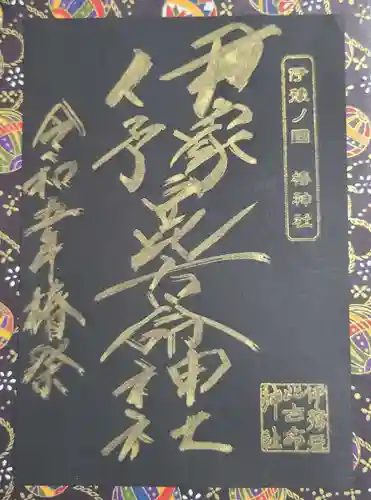 伊豫ノ國 椿神社
伊豫豆比古命神社
令和五年椿祭
伊豫豆
比古命
神社